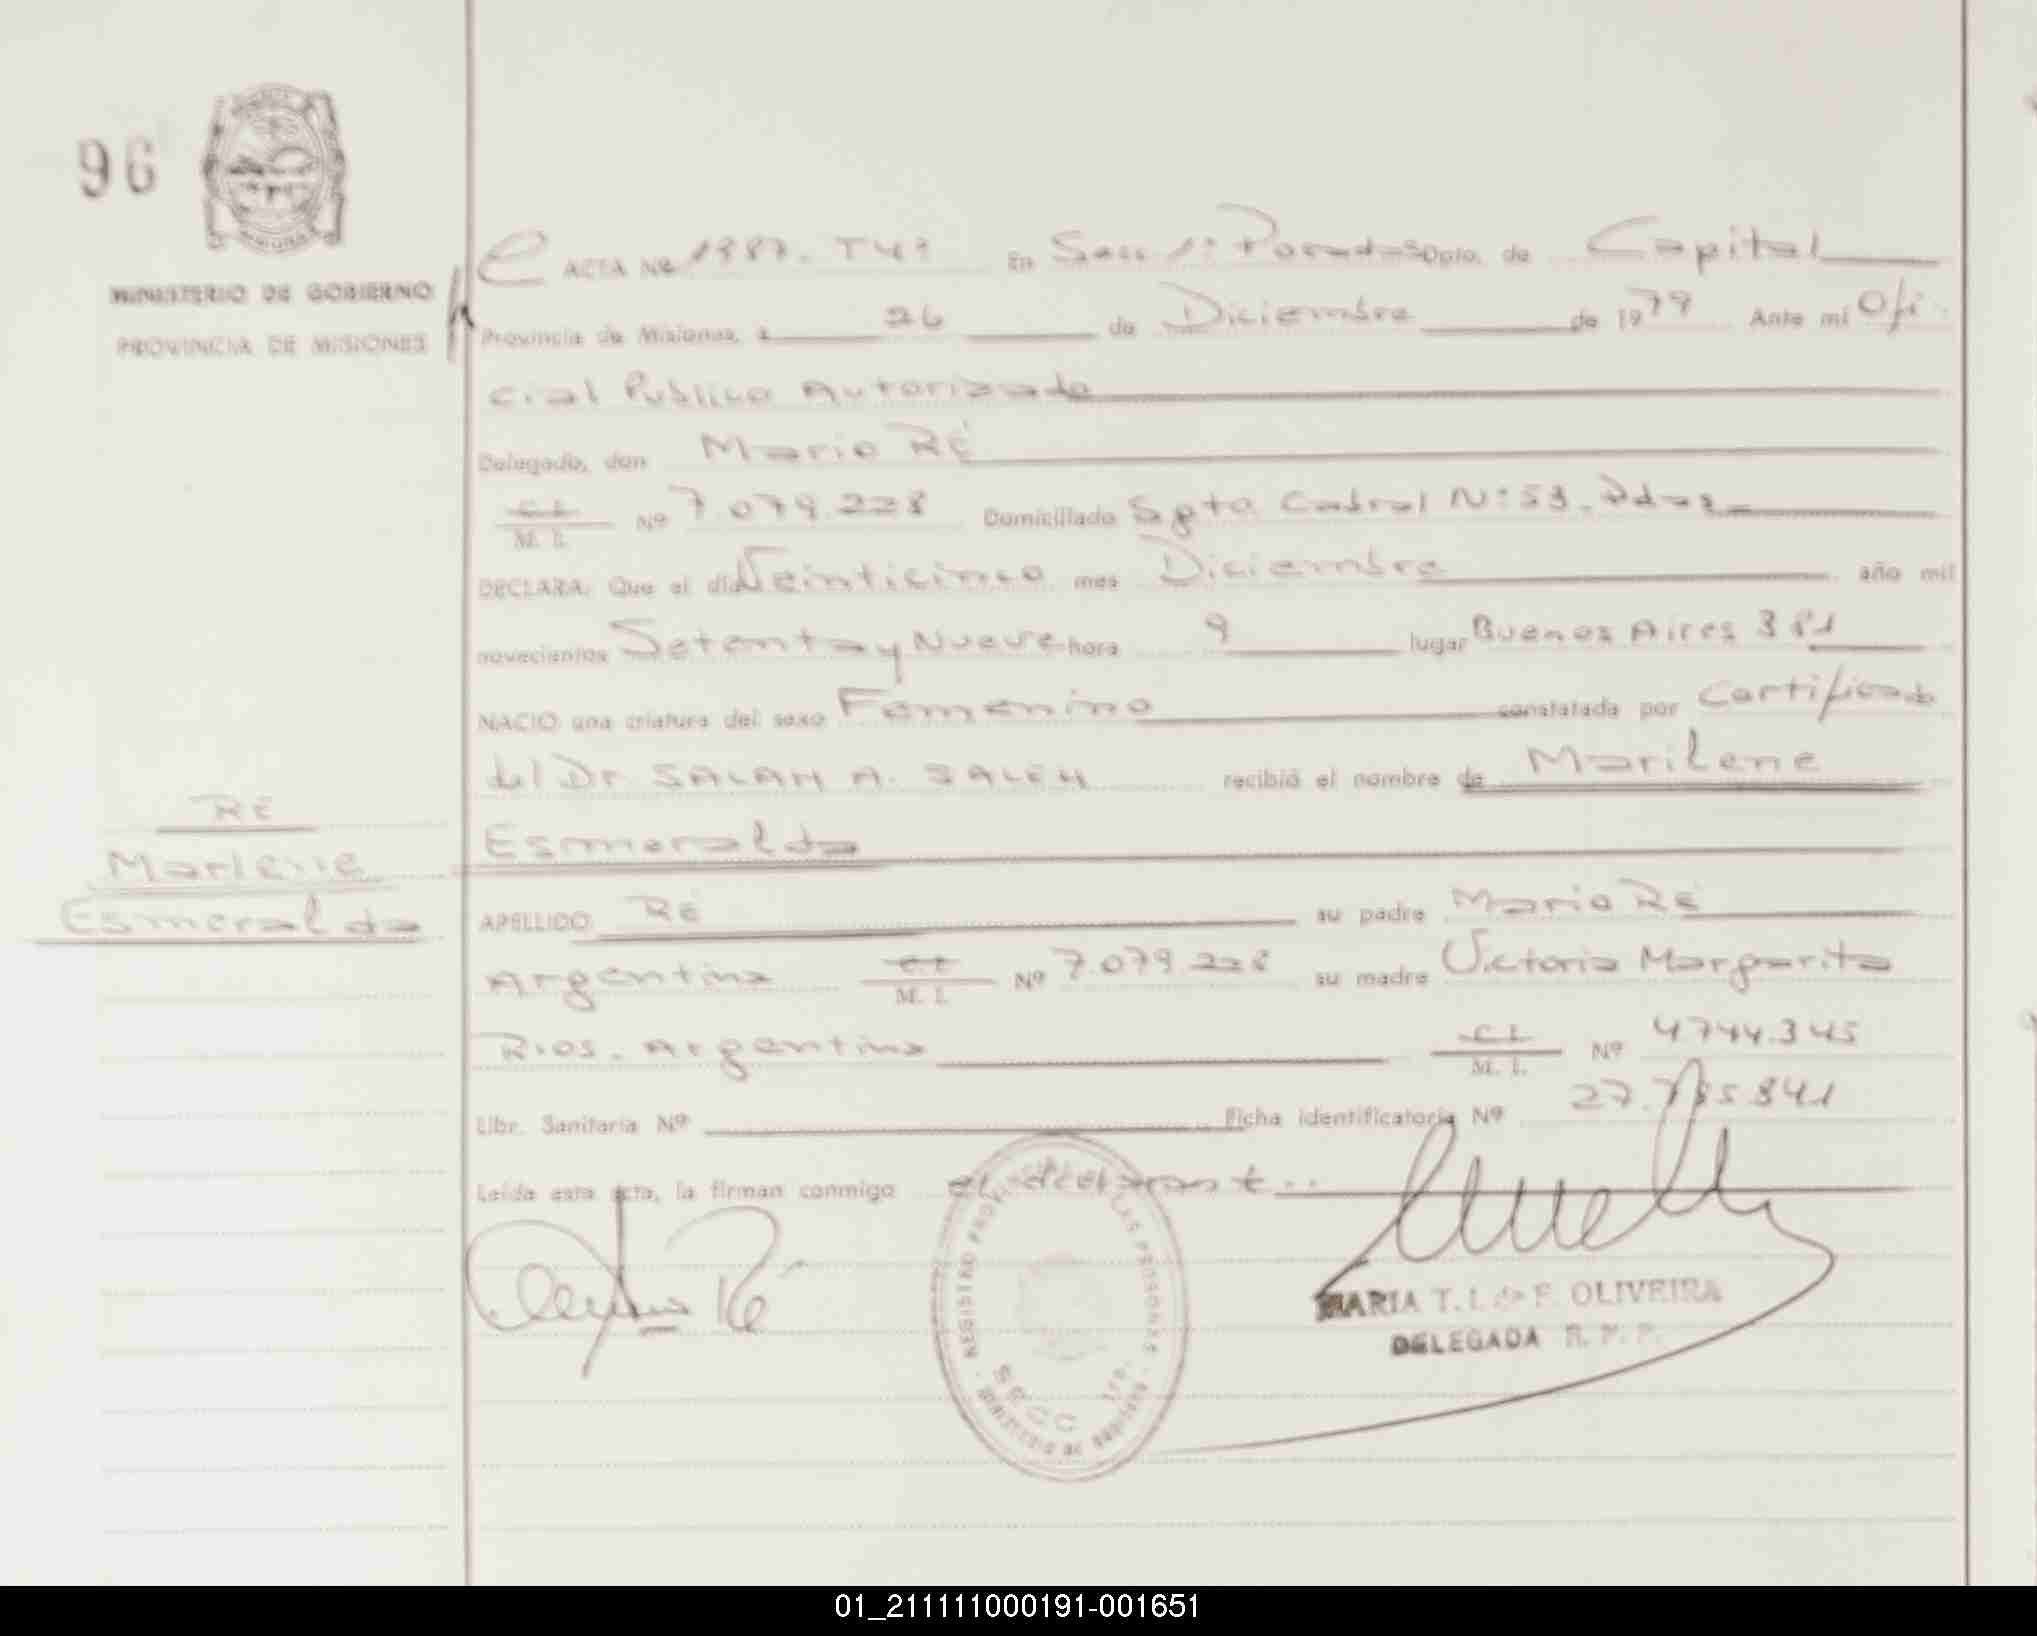 96
MINISTERIO DE GOBIERNO
PROVINCIA DE MISIONES
ACTA Nº 1887. T4º En Secc 1º Posadas Dpto. de Capital
Provincia de Misiones, a 26 de Diciembre de 1979 Ante mi Ofi
cial Publico Autorizado
Delegado, don Mario RÉ
C. I. M. I. Nº 7.079.228 Domiciliado Sgto Cabral Nº 53. Pdas
DECLARA: Que el día Veinticinco mes Diciembre año mil
novecientos Setenta y Nueve hora 9 lugar Buenos Aires 381
NACIO una criatura del sexo Femenino constatada por Certificado
del Dr SALAH A. SALEH recibió el nombre de Marilene
Esmeralda
RE
Marlene
Esmeralda
APELLIDO RE su padre Mario RE
Argentina C.I. M. I. Nº 7.079.228 su madre Victoria Margarita
Rios. Argentina C.I. M. I. Nº 4744.345
Libr. Sanitaria Nº Ficha identificatoria Nº 27.785.841
Leída esta acta, la firman conmigo el declarante..
REGISTRO PROV. LAS PERSONAS
SECC 1ra.
MINISTERIO DE GOBIERNO
MARIA T. I. de F. OLIVEIRA
DELEGADA R. P. P.
01_211111000191-001651